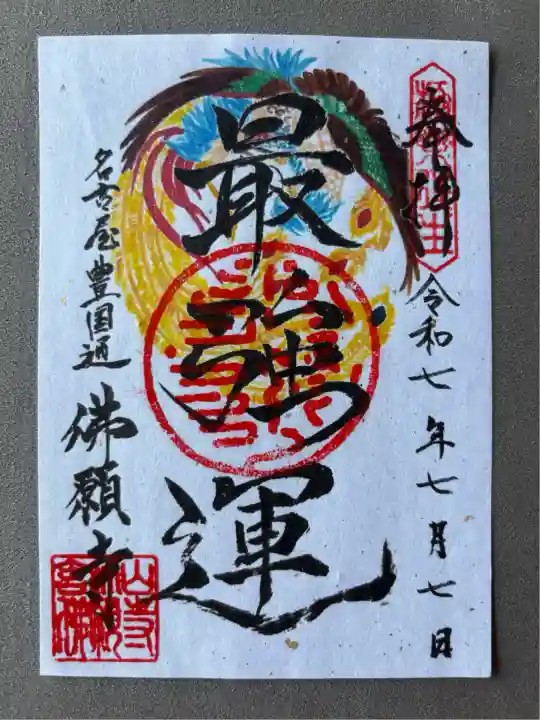 奉拝
令和七年七月七日
最強運
名古屋豊国通
佛願寺